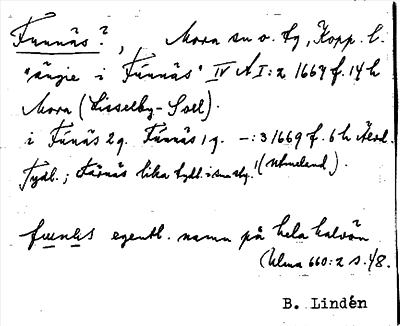 Funnäs?, Mora sn o. tg, Kopp. l.
"ängie i Fúnnäs" IV A I:2 1667 f. 14 h
Mora (Lisselby-Soll).
i Fúnäs 2 g. Fúnäs 1 g. –:3 1669 f. 6 h
Tydl.; Färnäs lika tydl. i sm stg. (Utmeland).
funäs egentl. namn på hela halvön
(Ulma 660:2 s. 48.
B. Lindén